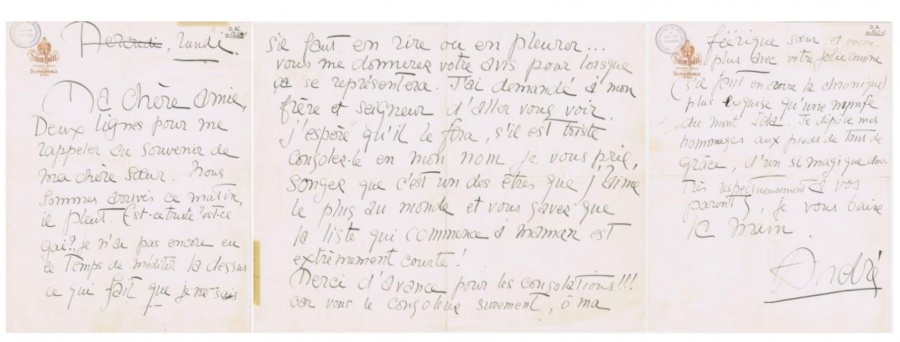 Mercredi, lundi.
Ma chère amie,
Deux lignes pour me
rappeler au souvenir de
ma chère sœur. Nous
sommes arrivés ce matin,
il pleut. Est-ce triste? est-ce
gai? je n'ai pas encore eu
le temps de méditer la dessus
ce qui fait que je ne sais
s'il faut en rire ou en pleurer...
vous me donnerez votre avis pour lorsque
ça se représentera. J'ai demandé à mon
frère et seigneur d'aller vous voir.
j'espère qu'il le fera, s'il est triste
consolez-le en mon nom je vous prie,
songez que c'est un des êtres que j'aime
le plus au monde et vous savez que
la liste qui commence à maman est
extrêmement courte!
Merci d'avance pour les consolations!!!
car vous le consolerez surement, ô ma
féerique sœur, et encor
plus avec votre jolie cousine
(s'il faut en croire la chronique)
plus exquise qu'une nymphe
du mont Ida. Je dépose mes
hommages aux pieds de tant de
grâce, d'un si magique
Très respectueusement à vos
parents, je vous baise
la main.
André